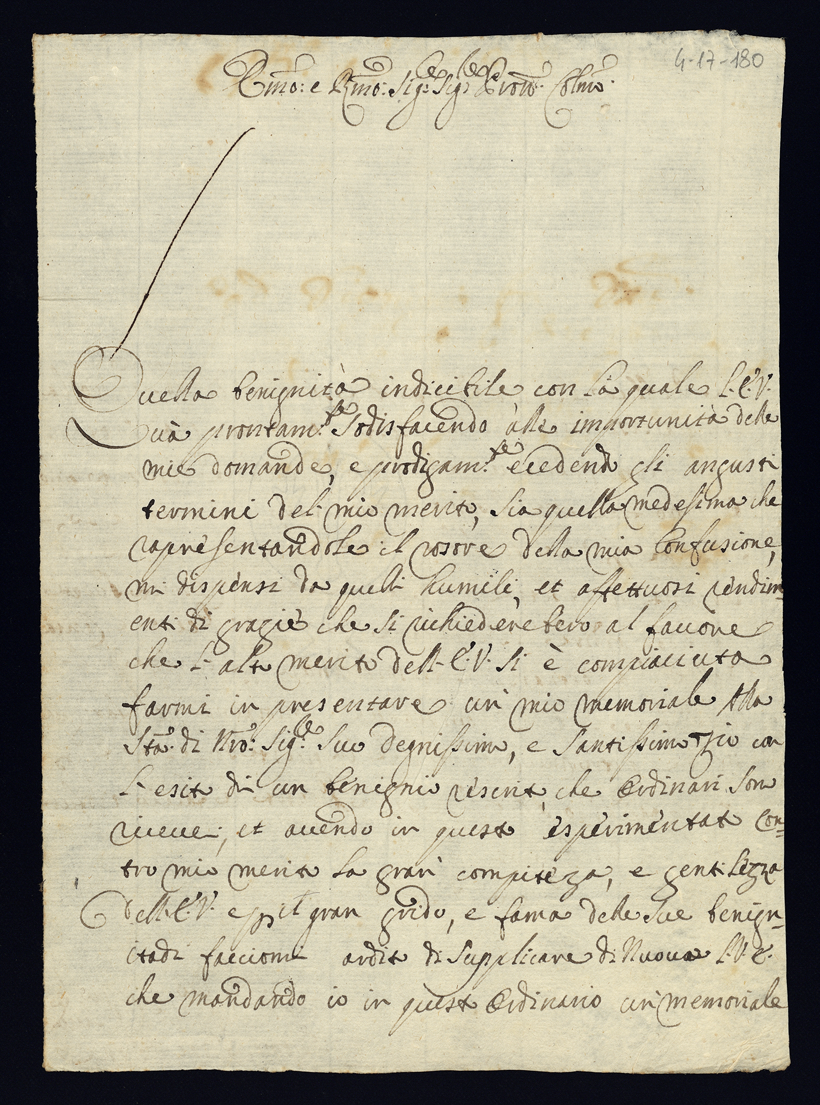 4-17-180
Emo: e Rmo: Sigre: Sigre Prone Colmo
Quella benignità indicibile con la quale l'E.V.
và prontamte Sodisfacendo alle importunità delle
mie domande, e prodigamte ecedendo gli angusti
termini del mio merito, sia quella medesima che
rapresentandole il rosore della mia Confusione,
mi dispensi da quelli humili, et affettuosi rendim-
enti di grazie che si richiederebero al favore
che l'alto merito dell'E.V. si è compiaciuta
farmi in presentare un mio memoriale Alla
Stà di Nro: Sige Suo degnissimo, e Santissimo Zio con
l'esito di un benigno rescrito, che Ordinari Sono
ricevei, et avendo in questo esperimentato Con=
tro mio merito la gran compiteza, e gentilezza
dell'E.V. e p il gran grido, e fama delle sue benign-
itadi facciomi ardito di Supplicare di Nuovo l'V.E.
che mandando io in questo Ordinario un memoriale